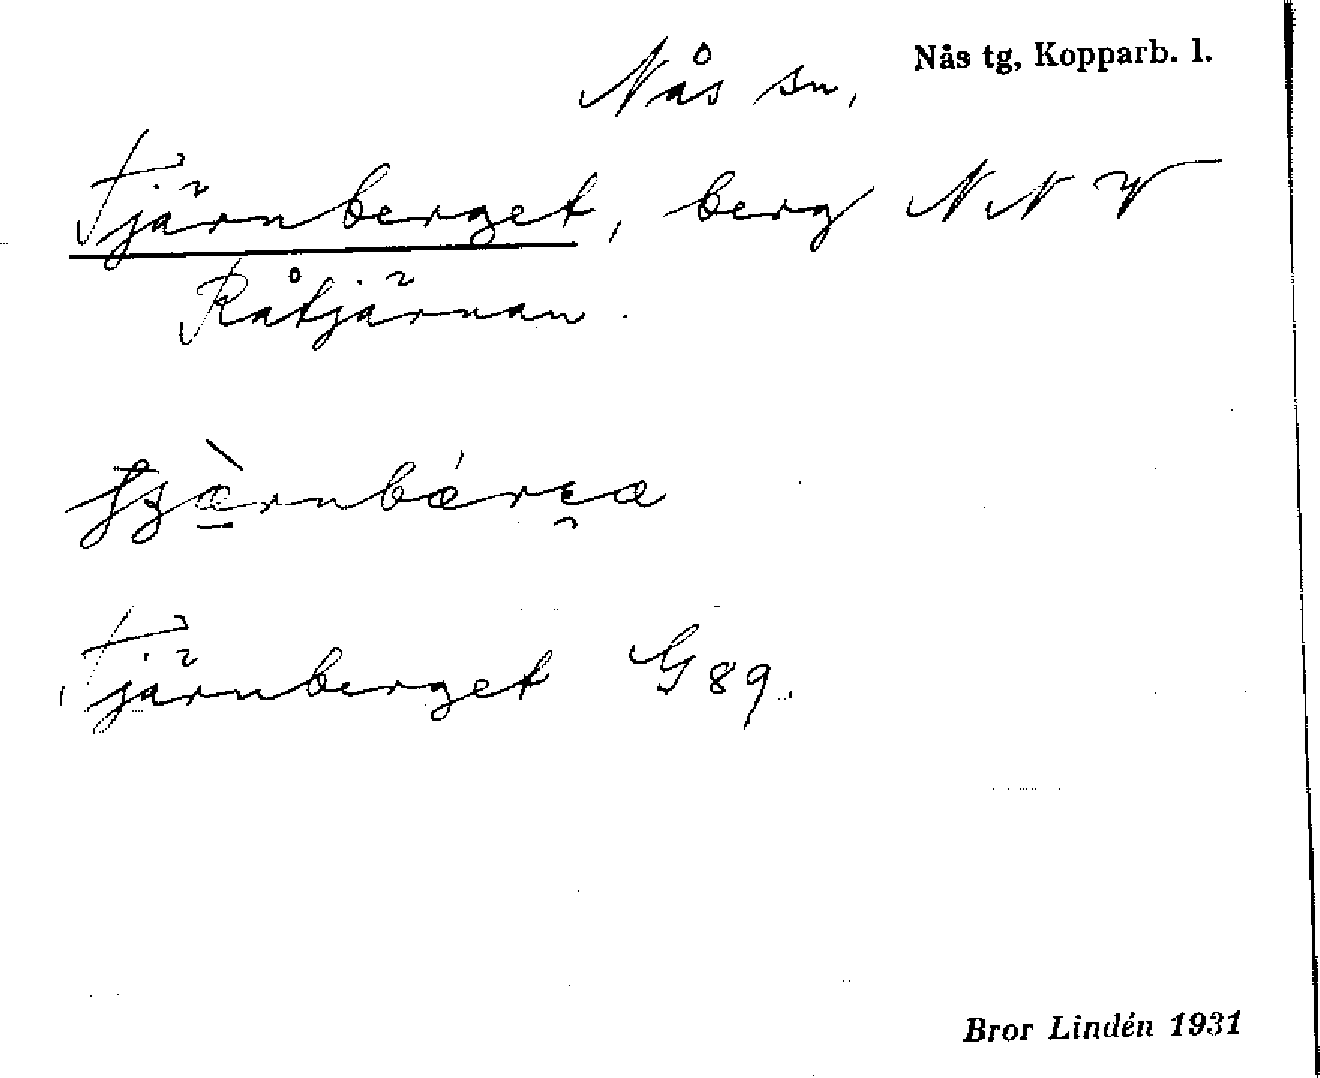 Nås sn, Nås tg, Kopparb. l.
Tjärnberget, berg NNV
Råtjärnan.
Tjärnberget G 89.
Bror Lindén 1931